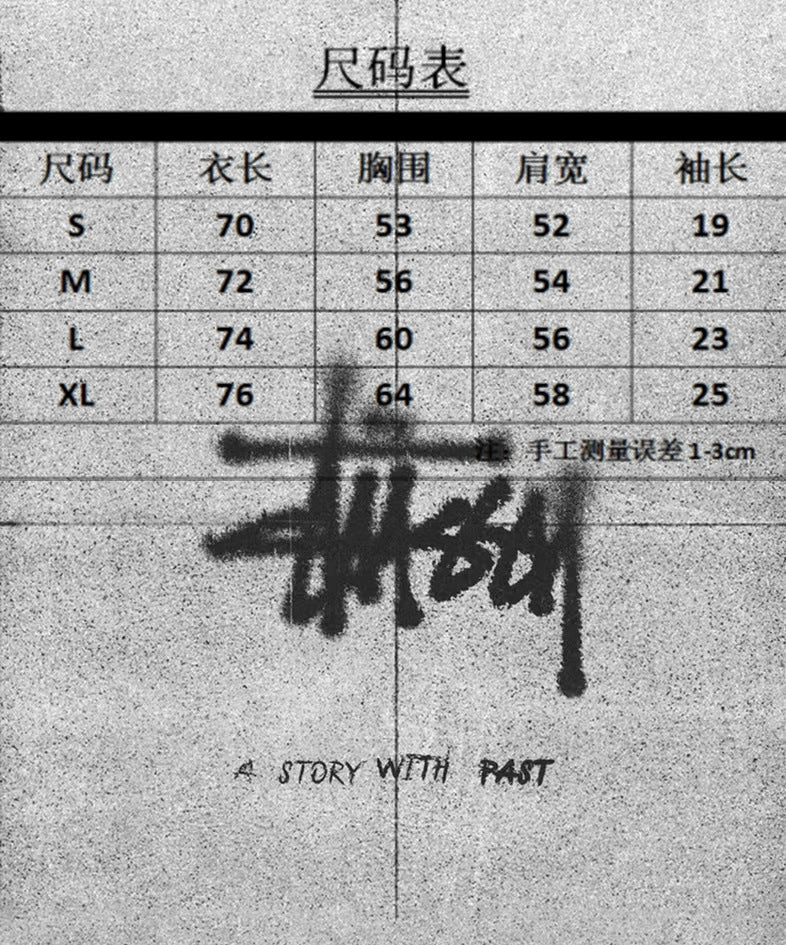 尺码表
尺码 衣长 胸围 肩宽 袖长
S 70 53 52 19
M 72 56 54 21
L 74 60 56 23
XL 76 64 58 25
注：手工测量误差1-3cm
stussy
A STORY WITH PAST